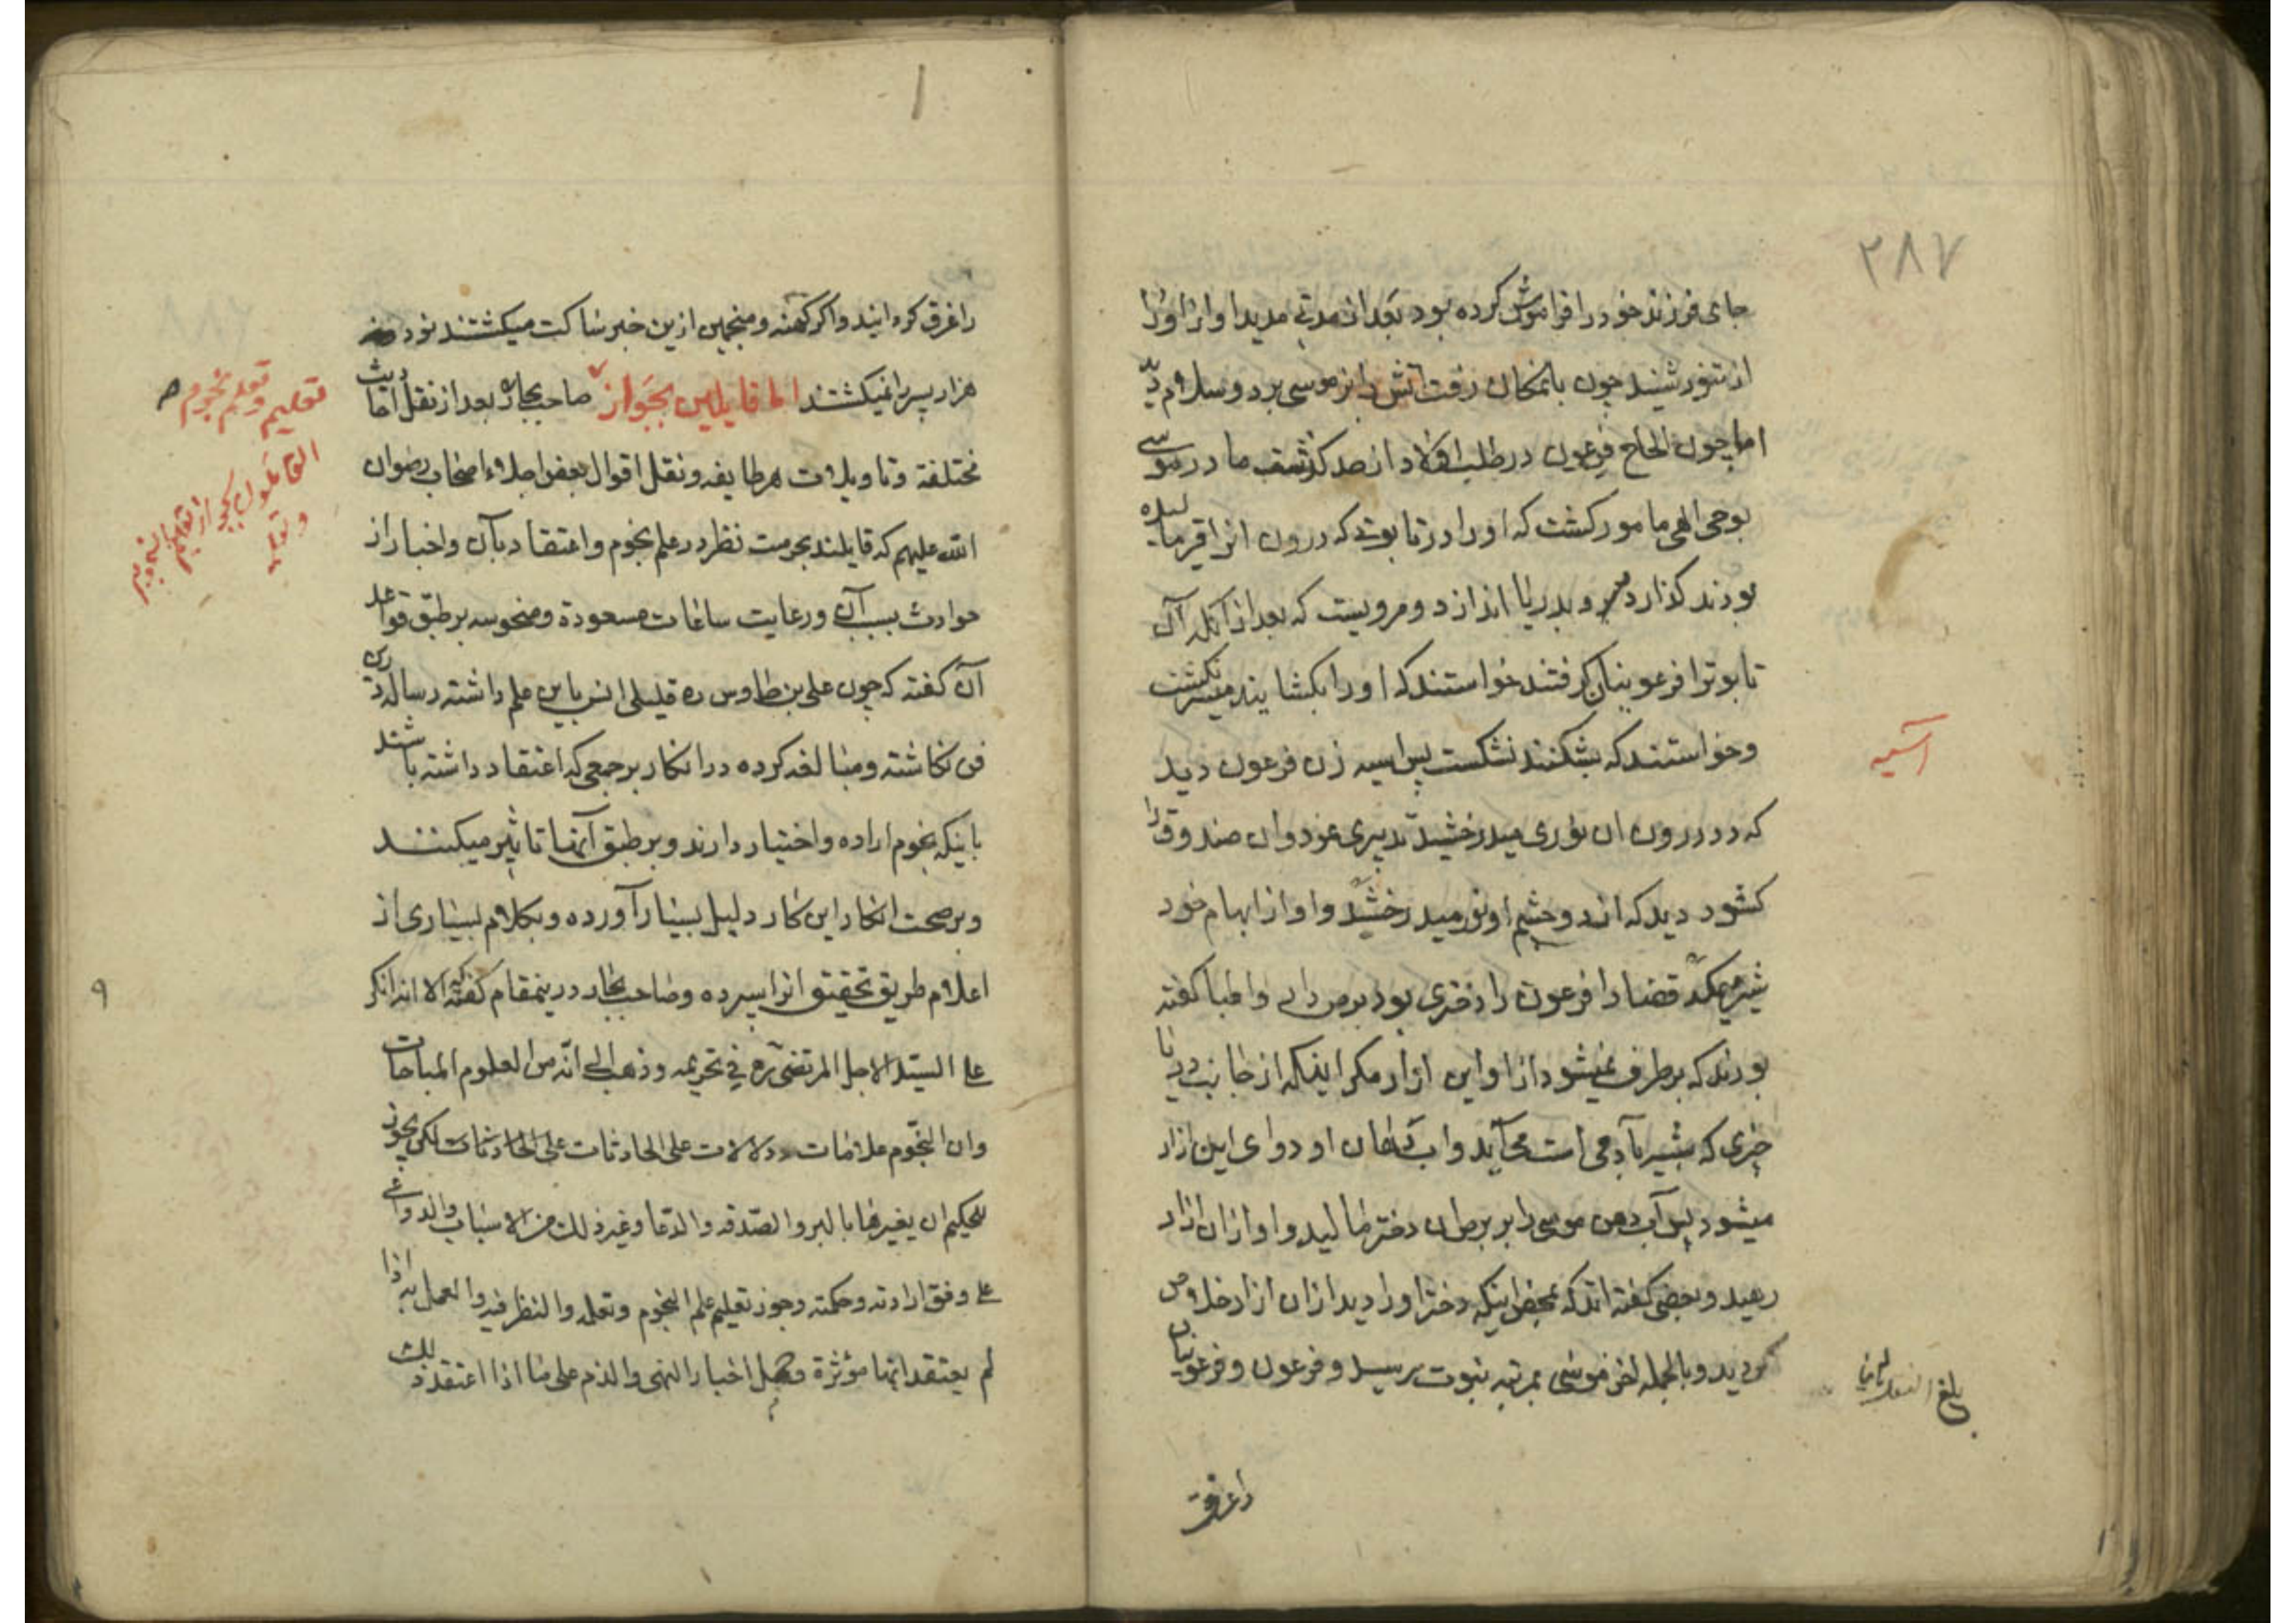 ۲۸۷
جای فرزند خود را فراموش کرده بود بعد از مدتی مدید اواز او را
از تنور شنید چون بانمکان رفت آتش را بر موسی برد و سلام دید
اما چون الحاح فرعون در طلب اولاد از حد کذشت مادر موسی
بوحی الهی مامور کشت که او را در تابوتی که درون انرا قیر مالیده
بودند کذارد و بدریا اندازد و مرویست که بعد از آنکه آن
تابوترا فرعونیان کرفتند خواستند که او را بکشایند میسر نکشت
و خواستند که بشکنند نشکست پس اسیه زن فرعون دید
که در درون ان نوری میدرخشید تدبیری نمود و ان صندوق را
کشود دید که از دو چشم او نور میدرخشید و او از ابهام خود
شیر میمکد قضا را فرعون را دختری بود برص دار و اطبا کفته
بودند که بر طرف نمیشود از او این ازار مکر اینکه از جانب دریا
چیزی که شبیه بآدمی است می‌آید و اب دهان او دوای این ازار
میشود پس آب دهن موسی را بر برص ان دختر مالید و او از ان ازار
رهید و بعضی کفته اند که بمحض اینکه دختر او را دید از ان ازار خلاص
کردید و بالجمله اخر موسی بمرتبه نبوت رسید و فرعون و فرعونیان
را غرق
آسیه
بلغ
را غرق کردانید و اکر کهنه و منجمین ازین خبر ساکت میکشتند نود
هزار پسر را نمیکشتند اما قایلین بجواز صاحب بحار بعد از نقل احادیث
مختلفة و تاویلات هر طایفه و نقل اقوال بعض اجلاء اصحاب رضوان
الله علیهم که قایلند بحرمت نظر در علم نجوم و اعتقاد بآن و اخبار از
حوادث بسبب آن و رعایت ساعات مسعودة و منحوسه بر طبق قواعد
آن کفته که چون علی بن طاوس ره قلیلی انس باین علم داشته رساله در
فن نکاشته و مبالغه کرده در انکار بر جمعی که اعتقاد داشته باشند
باینکه نجوم اراده و اختیار دارند و بر طبق آنها تاثیر میکنند
و بر صحت انکار این کار دلیل بسیار آورده و بکلام بسیاری از
اعلام طریق تحقیق انرا سپرده و صاحب بحار درینمقام کفته که الا انه انکر
علی السید الاجل المرتضی ره فی تحریمه و ذهب الی انه من العلوم المباحات
وان النجوم علامات و دلالات علی الحادثات لکن یجوز
للحکیم ان یغیرها بالبر و الصدقه و الدعا و غیر ذلک من الاسباب والدواعی
علی وفق ارادته و حکمته و جوز تعلیم علم النجوم و تعلمه والنظر فیه والعمل به اذا
لم یعتقد انها مؤثرة و حمل اخبار النهی والذم علی ما اذا اعتقد ذلک
تعلیم و تعلم نجوم
القائلون بجواز تعلیم
۹